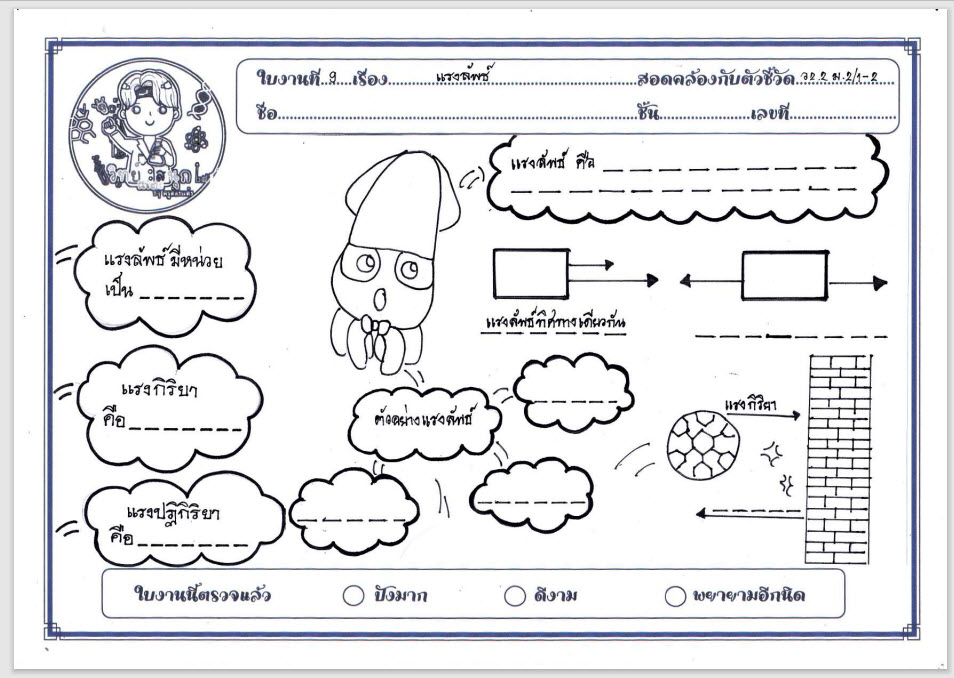 ใบงานที่ 9 เรื่อง แรงลัพธ์ สอดคล้องกับตัวชี้วัด ว2.2 ม.2/1-2
ชื่อ ชั้น เลขที่
แรงลัพธ์ คือ
แรงลัพธ์ มีหน่วย
เป็น
แรงลัพธ์ทิศทางเดียวกัน
แรงกิริยา
คือ
ตัวอย่างแรงลัพธ์
แรงกิริยา
แรงปฏิกิริยา
คือ
ใบงานนี้ตรวจแล้ว ปังมาก ดีงาม พยายามอีกนิด